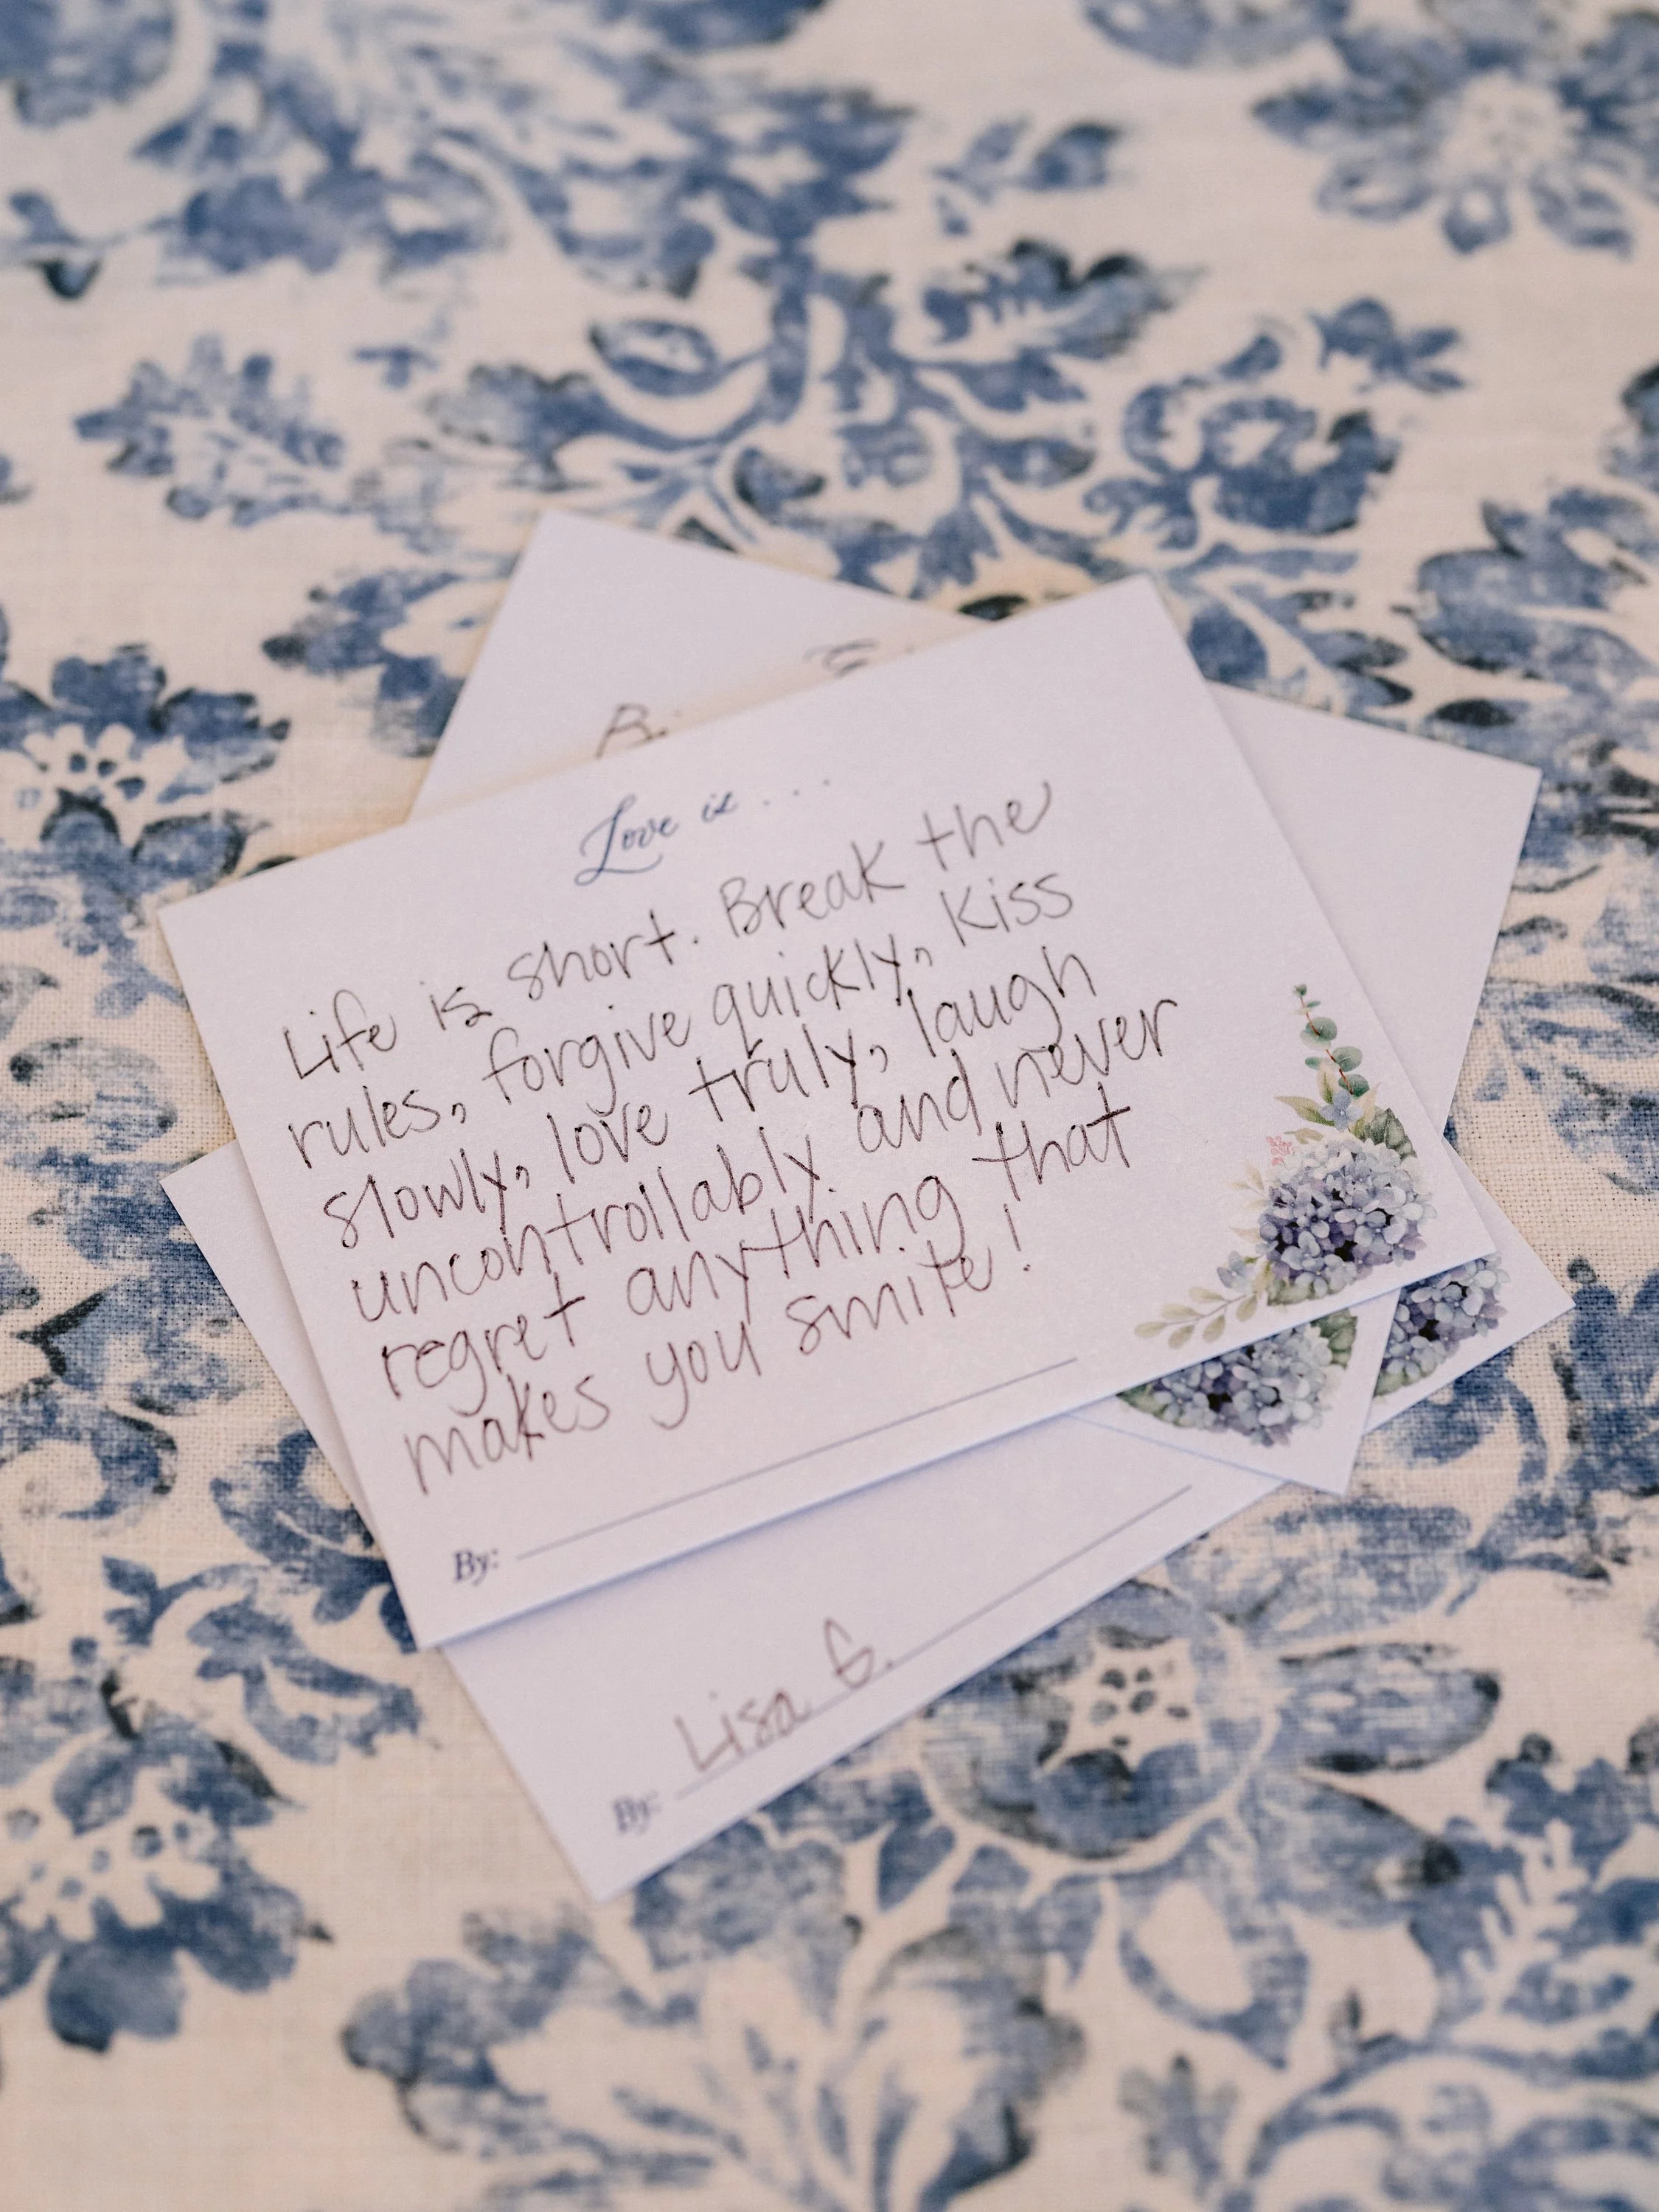 Love is . . .
Life is short. Break the
rules, forgive quickly, kiss
slowly, love truly, laugh
uncontrollably and never
regret anything that
makes you smile!
By:
Lisa G.
By: